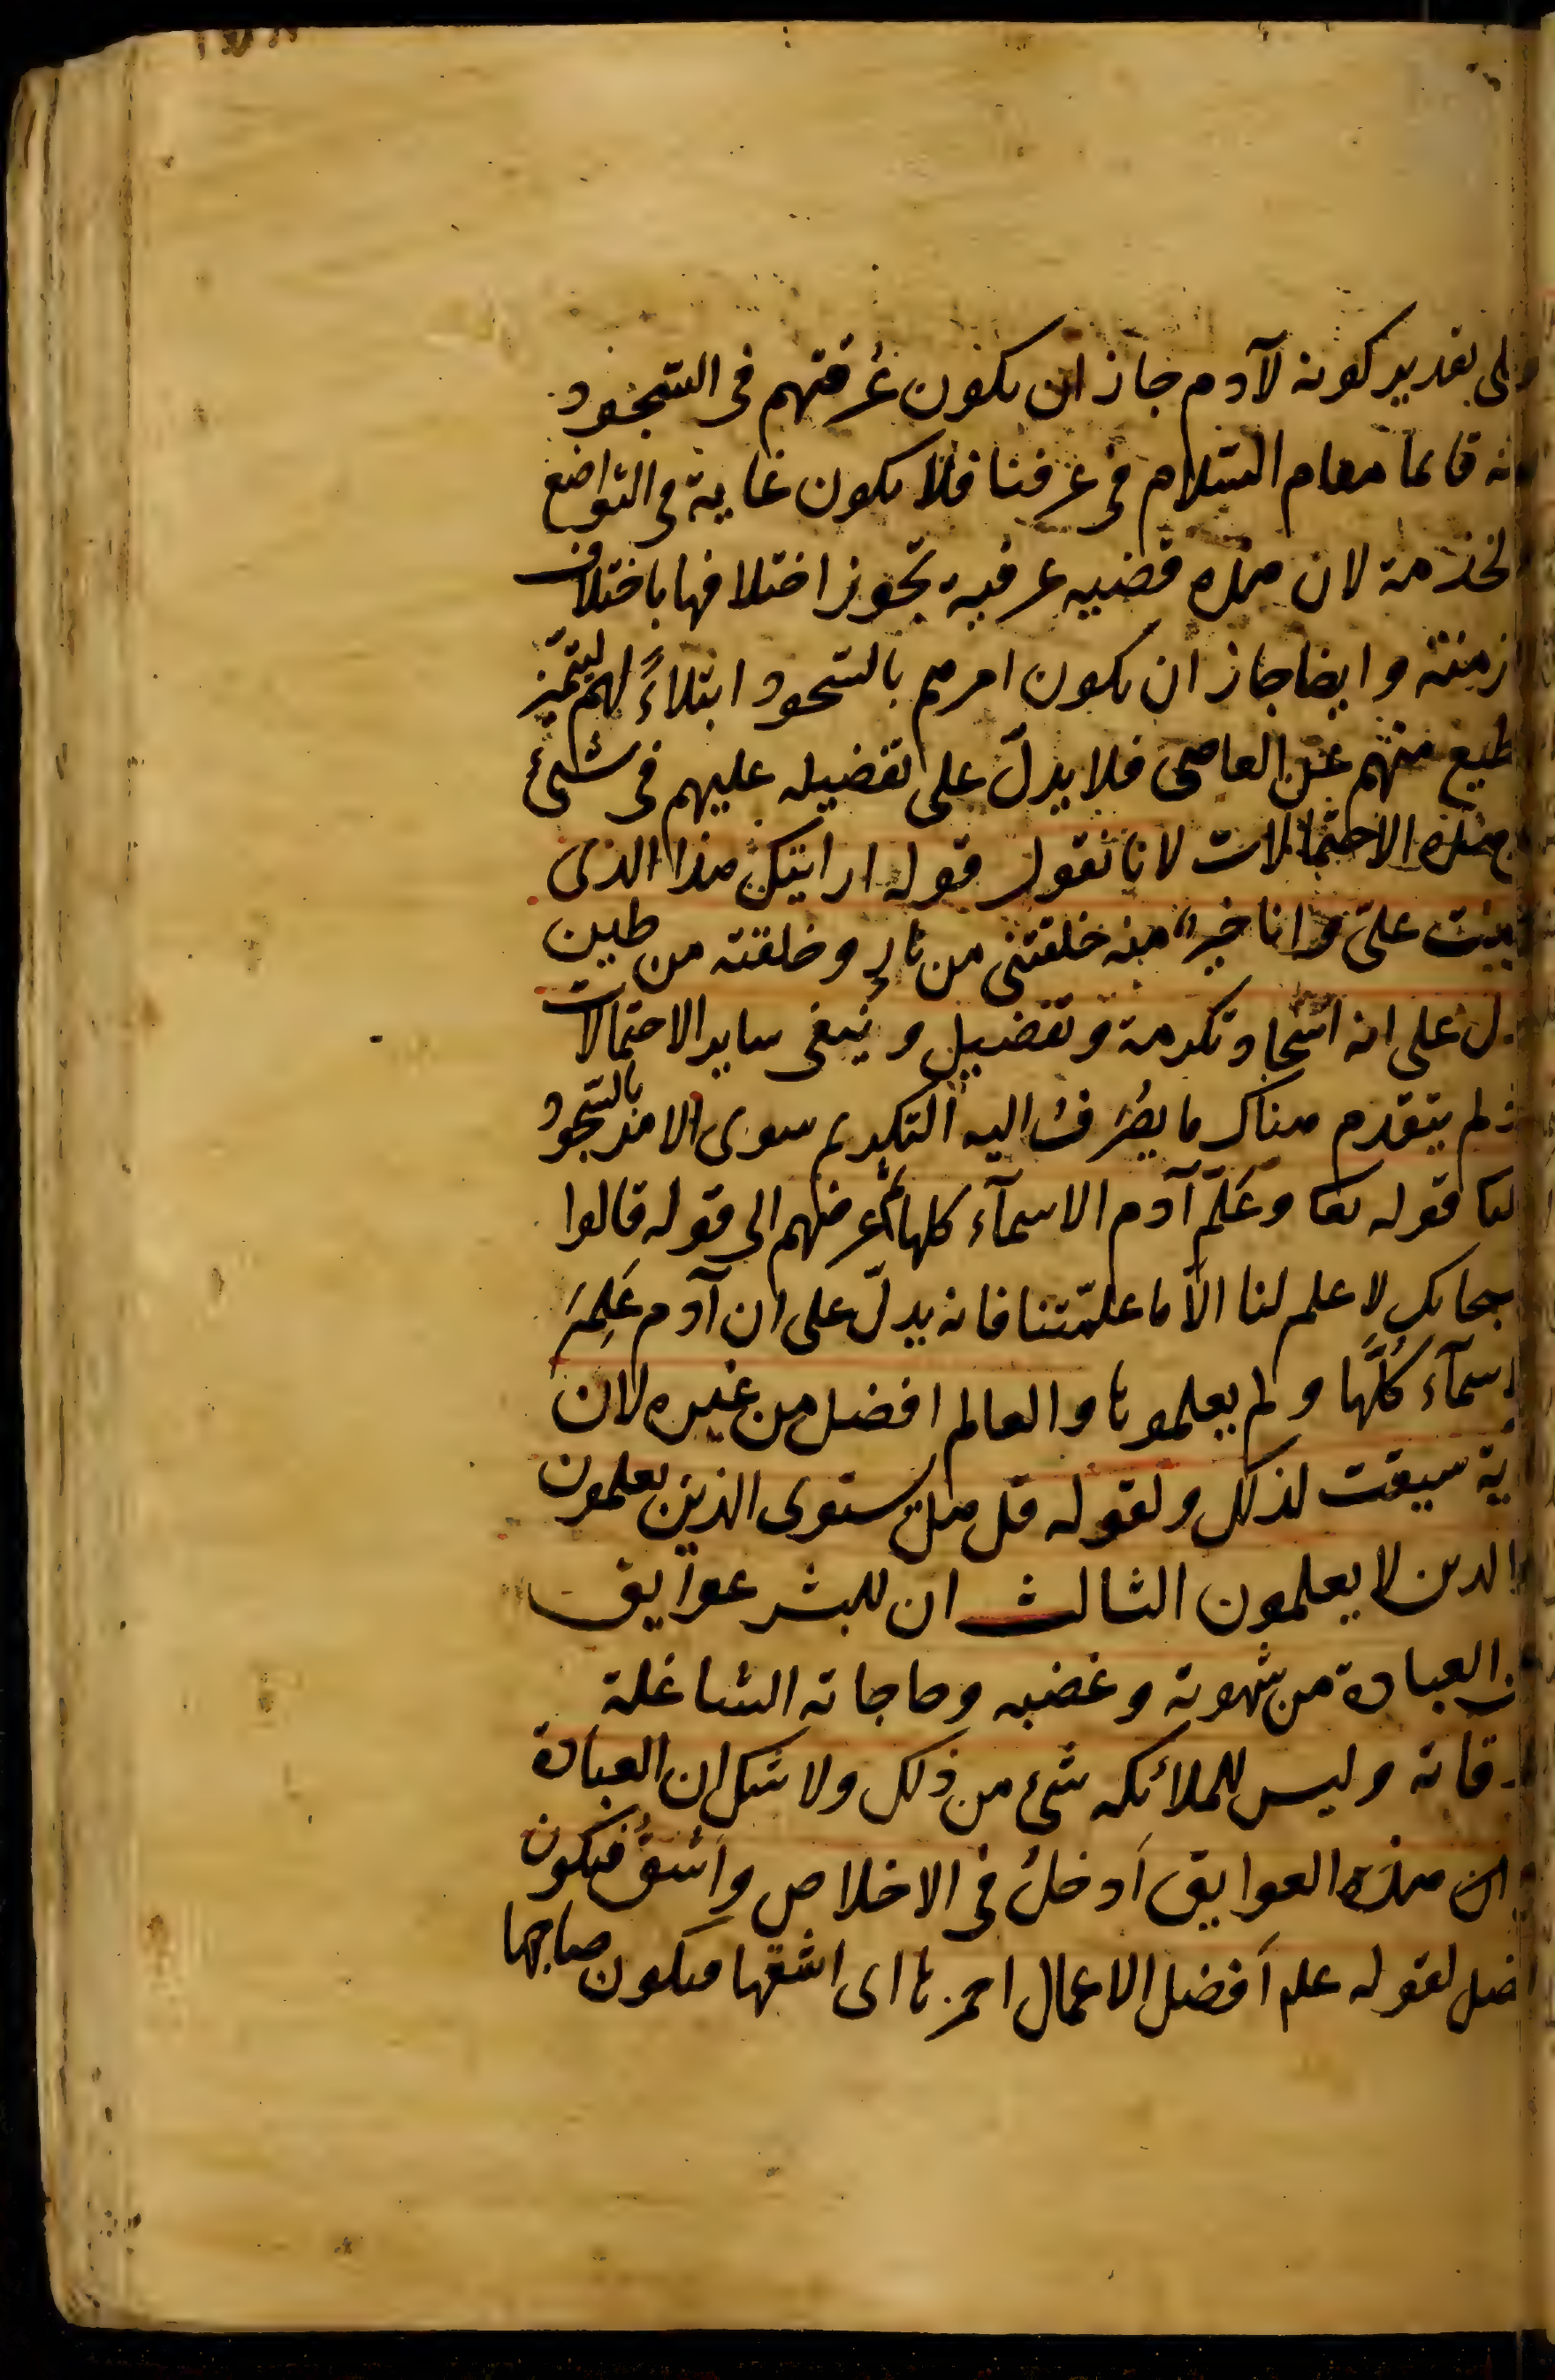 على تقدير كونه لآدم جاز ان يكون عُرفهم فى السّجود
نه قائما مقام السّلام فى عرفنا فلا يكون غاية فى التواضع
لخدمة لان هذه قضيه عرفية تجوز اختلافها باختلاف
زمنة وايضا جاز ان يكون امرهم بالسّجود ابتلاءً لهم ليتميّز
طيع منهم عن العاصى فلا يدلّ على تفضيله عليهم فى شىء
هذه الاحتمالات لانا نقول قوله ارايتك هذا الذى
علىّ وانا خيرٌ منه خلقتنى من نارٍ وخلقته من طين
دل على انه اسجاد تكرمة وتفضيل وينفى ساير الاحتمالات
ذ لم يتقدم هناك ما يُصرَف اليه التكريم سوى الامر بالسّجود
قوله تعا وعَلّم آدم الاسمآء كلها ثم عرضهم الى قوله قالوا
بحانك لا علم لنا الّا ما علمّتنا فانه يدلّ على ان آدم عَلِمَ
سمآء كُلَّها ولم يعلموها والعالم افضل من غيره لان
ية سيقت لذلك ولقوله قل هل يستوى الذين يعلمون
والذين لا يعلمون الثالث ان للبشر عوايق
ن العبادة من شهوته وغضبه وحاجاته الشاغلة
قاته وليس للملائكه شىء من ذلك ولا شك ان العبادة
هذه العوايق اَدخلُ فى الاخلاص واَشقُّ فيكون
ضل لقوله علم اَفضل الاعمال احمزها اى اشقها فيكون صاحبها